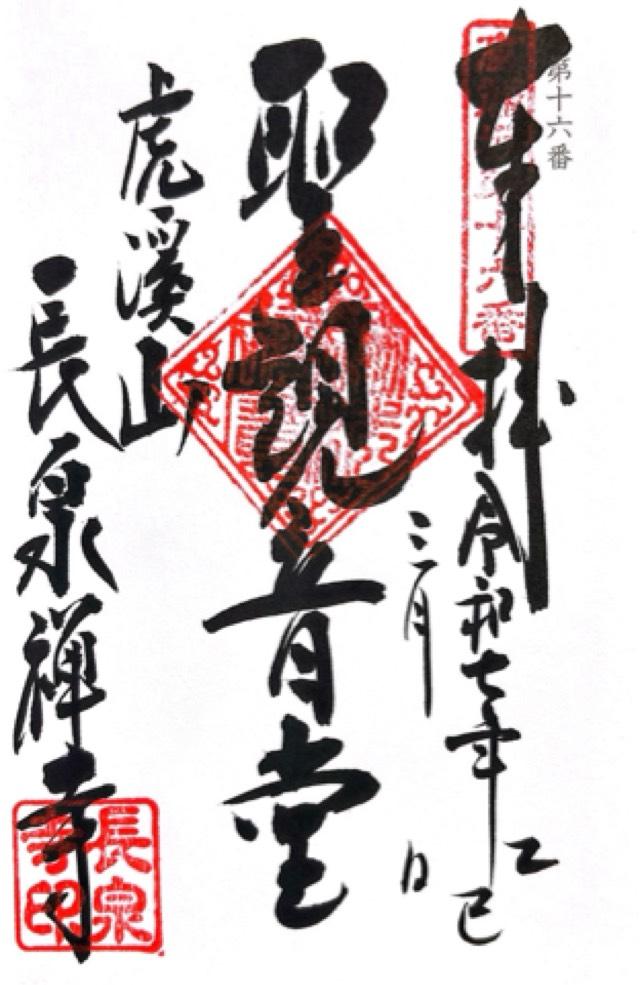 第十六番
奉拝
令和七年乙巳
三月 日
聖観音堂
虎溪山
長泉禅寺
長泉寺印